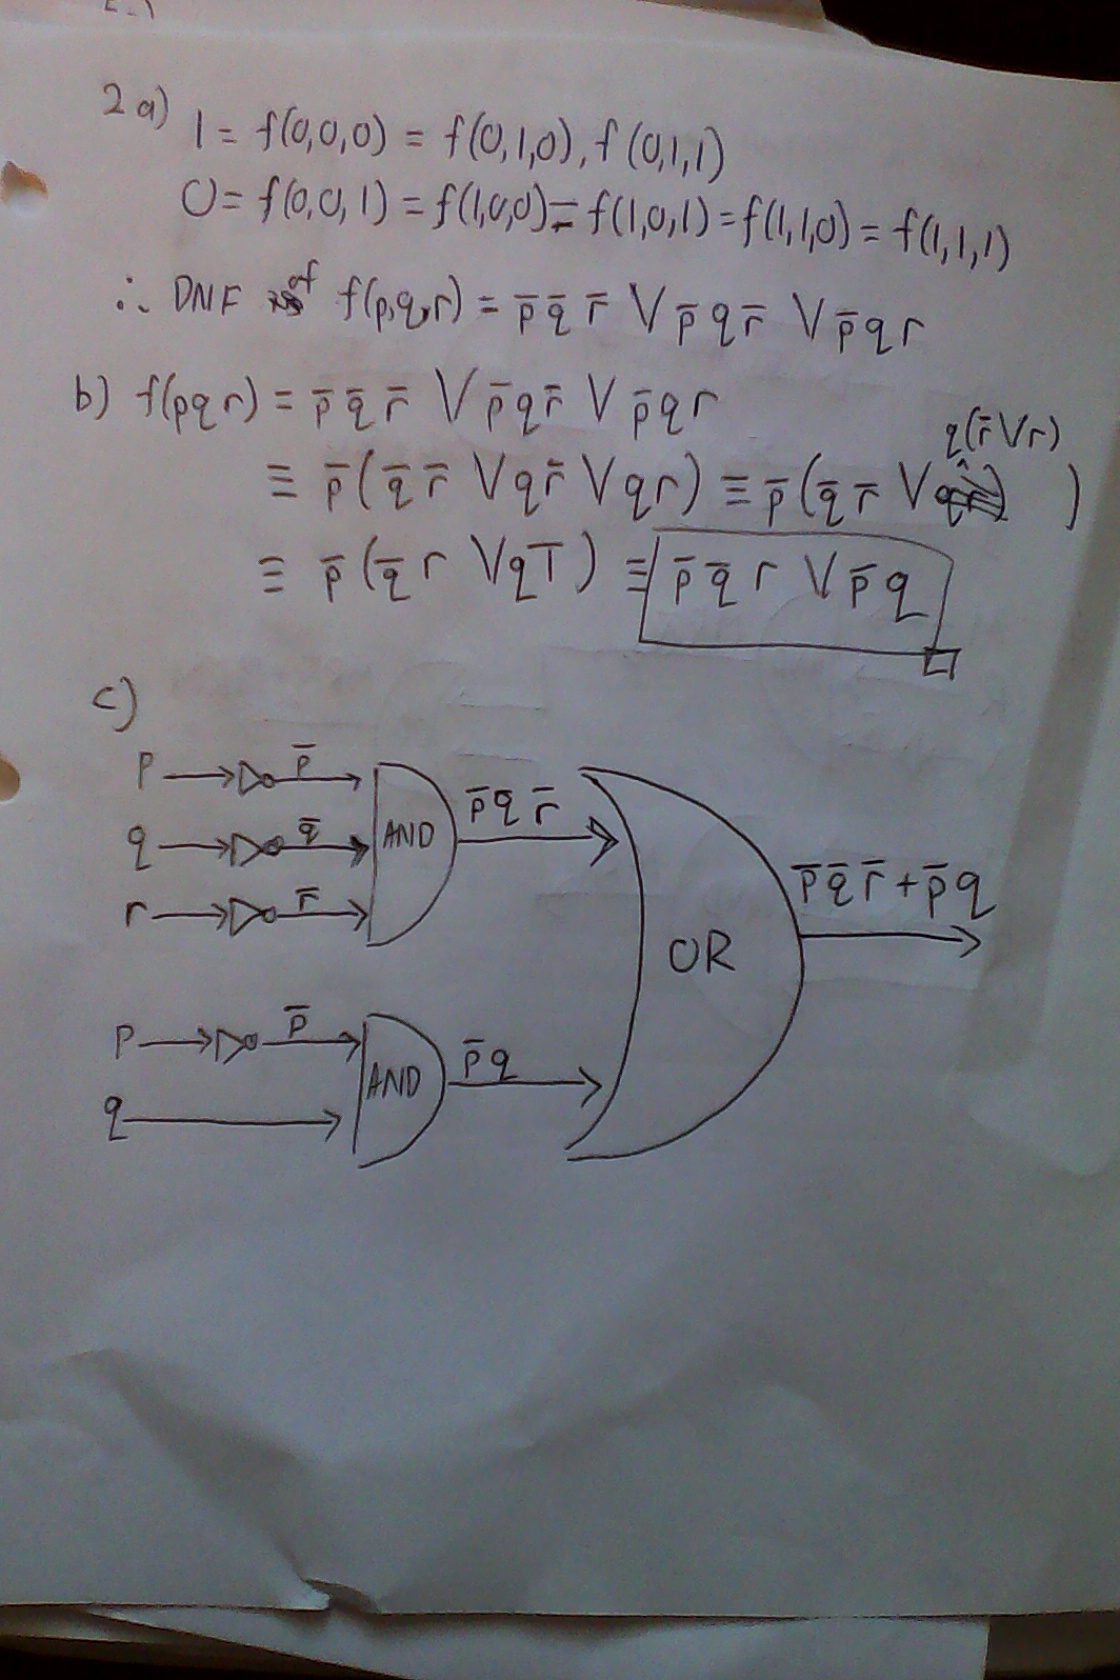 2a) 1 = f(0,0,0) = f(0,1,0), f(0,1,1)
0 = f(0,0,1) = f(1,0,0) = f(1,0,1) = f(1,1,0) = f(1,1,1)
∴ DNF of f(p,q,r) = p̄ q̄ r̄ ∨ p̄ q r̄ ∨ p̄ q r
b) f(pqr) = p̄ q̄ r̄ ∨ p̄ q r̄ ∨ p̄ q r
≡ p̄(q̄ r̄ ∨ q r̄ ∨ q r) ≡ p̄(q̄ r̄ ∨ q(r̄ ∨ r))
≡ p̄(q̄ r ∨ qT) ≡ p̄ q̄ r ∨ p̄ q
c)
p p̄
q q̄ AND p̄ q̄ r̄
r r̄
OR p̄ q̄ r̄ + p̄ q
p p̄
AND p̄ q
q